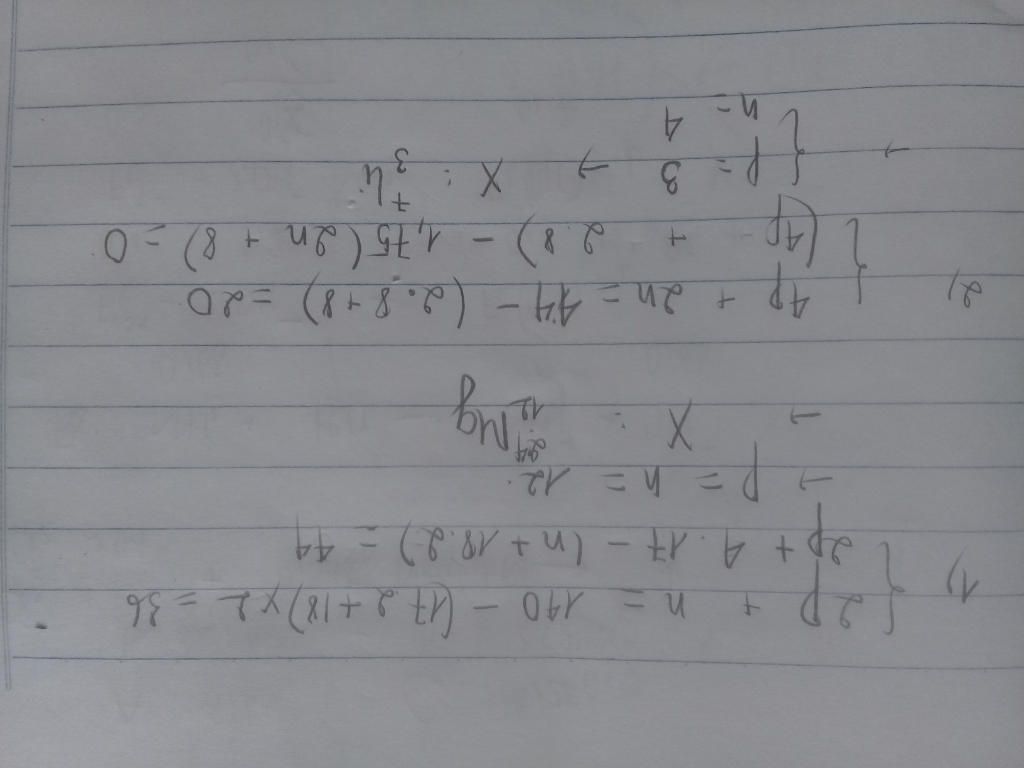 1) { 2p + n = 140 - (17.2+18)x2 = 36
2p + 4.17 - (n + 18.2) = 44
→ p = n = 12.
→ X : ²⁴₁₂Mg
2) { 4p + 2n = 44 - (2.8+8) = 20
(4p + 2.8) - 1,75(2n + 8) = 0
→ { p = 3 → X : ⁷₃Li
n = 4